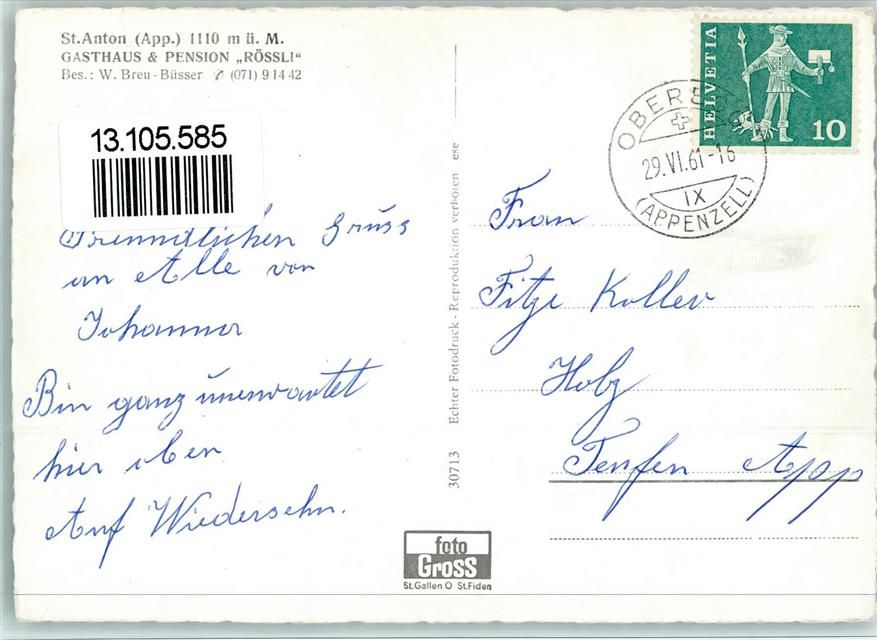 St.Anton (App.) 1110 m ü. M.
GASTHAUS & PENSION „RÖSSLI"
Bes.: W. Breu-Büsser ✆ (071) 9 14 42
13.105.585
Freundlichen Gruss
an Alle von
Johanna
Bin ganz unerwartet
hier oben
Auf Wiedersehn.
30713 Echter Fotodruck - Reproduktion verboten ese
foto
Gross
St.Gallen O St.Fiden
HELVETIA
10
OBEREGG
29.VI.61-16
IX
(APPENZELL)
Frau
Fitze Koller
Holz
Teufen App